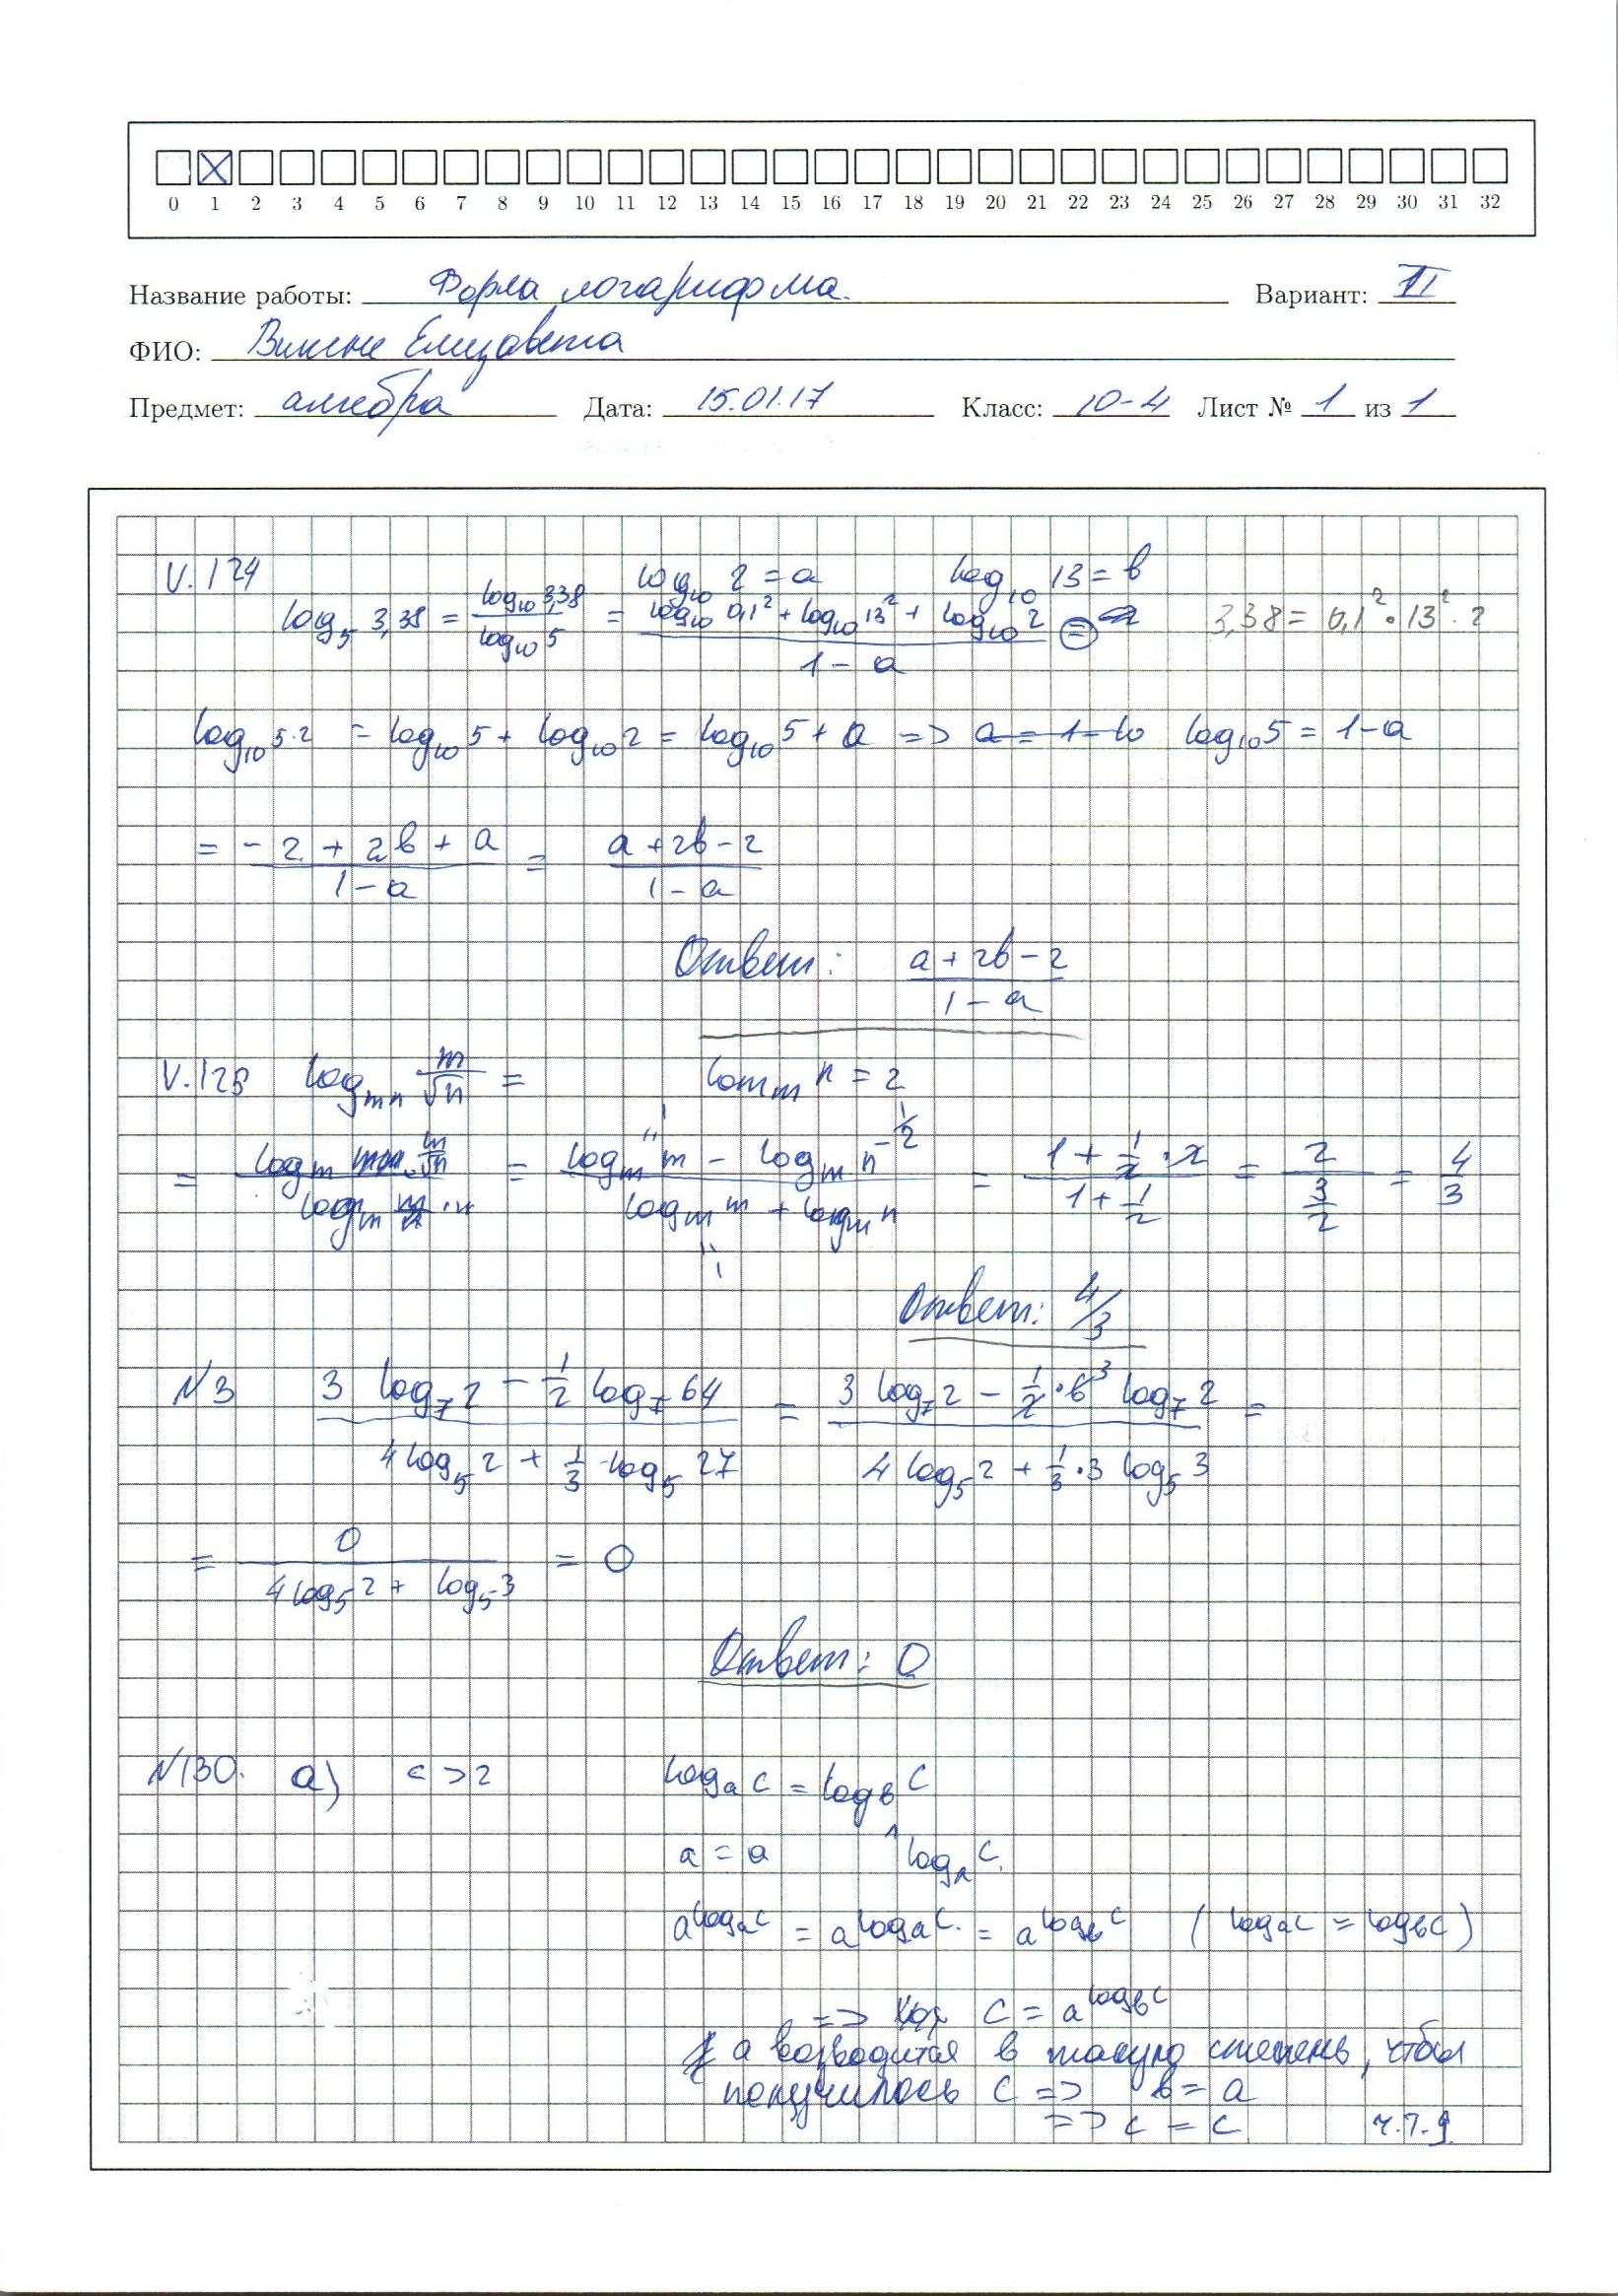 0 1 2 3 4 5 6 7 8 9 10 11 12 13 14 15 16 17 18 19 20 21 22 23 24 25 26 27 28 29 30 31 32
Название работы: Форма логарифма. Вариант: II
ФИО: Елизавета
Предмет: алгебра Дата: 15.01.17 Класс: 10-4 Лист № 1 из 1
V.124 log₁₀ 2 = a log₁₀ 13 = b
log₅ 3,38 = log₁₀ 3,38 / log₁₀ 5 = (log₁₀ 0,1² + log₁₀ 13² + log₁₀ 2) / (1 - a) = 3,38 = 0,1² · 13² · 2
log₁₀ 5·2 = log₁₀ 5 + log₁₀ 2 = log₁₀ 5 + a => log₁₀ 5 = 1-a
= (-2 + 2b + a) / (1-a) = (a + 2b - 2) / (1-a)
Ответ: (a + 2b - 2) / (1-a)
V.128 log_mn m/√n = n = 2
= = (log_m m - log_m n^(-1/2)) / (log_m m + log_m n) = (1 + 1/2 · 2) / (1 + 1/2) = 2 / (3/2) = 4/3
Ответ: 4/3
N3 (3 log₇ 2 - 1/2 log₇ 64) / (4 log₅ 2 + 1/3 log₅ 27) = (3 log₇ 2 - 1/2 · 6³ log₇ 2) / (4 log₅ 2 + 1/3 · 3 log₅ 3) =
= 0 / (4 log₅ 2 + log₅ 3) = 0
Ответ: 0
N130. a) c > 2 log_a c = log_b c
a = a log_a c
a^(log_a c) = a^(log_a c) = a^(log_b c) (log_a c = log_b c)
=> c = a^(log_b c)
a возводится в такую степень, чтобы
получилось c => b = a
=> c = c ч.т.д.